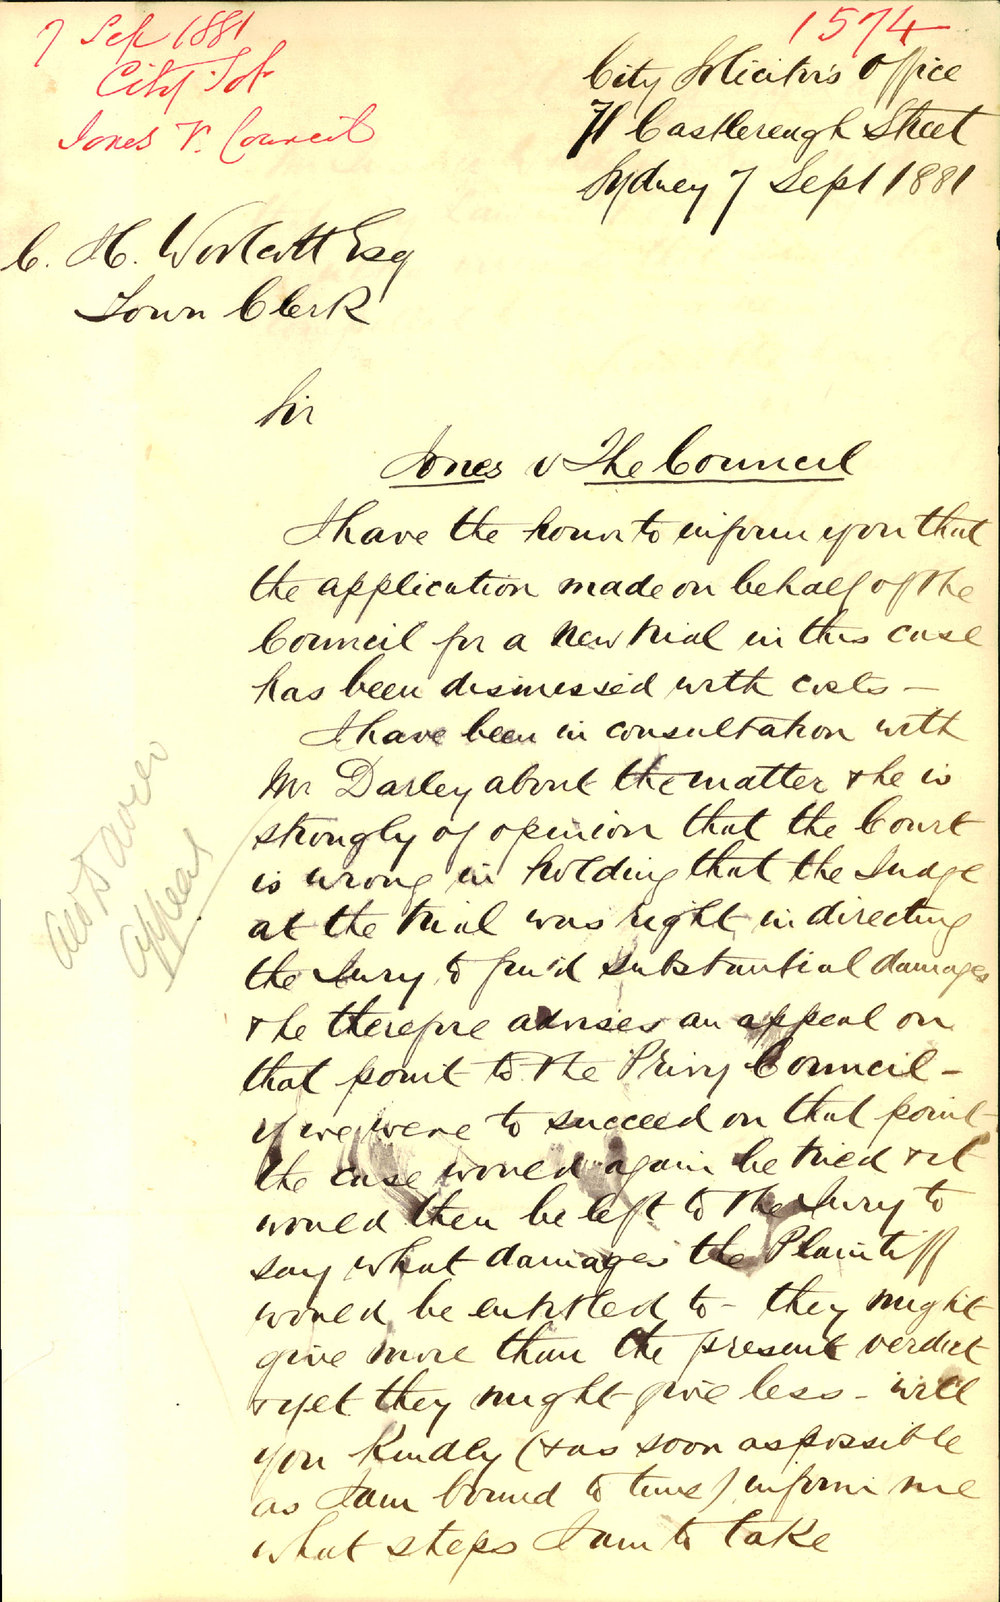 7 Sep 1881
City Sol
Jones V. Council
1574
City Solicitor's Office
71 Castlereagh Street
Sydney 7 Sept 1881
C. H. Woolcott Esq
Town Clerk
Sir
Jones v The Council
I have the honor to inform you that
the application made on behalf of the
Council for a new trial in this case
has been dismissed with costs –
I have been in consultation with
Mr Darley about the matter & he is
strongly of opinion that the Court
is wrong in holding that the Judge
at the trial was right in directing
the Jury to find substantial damages
& he therefore advises an appeal on
that point to the Privy Council –
if we were to succeed on that point
the case would again be tried & it
would then be left to the Jury to
say what damages the Plaintiff
would be entitled to – they might
give more than the present verdict
& yet they might give less – will
you kindly (& as soon as possible
as I am bound to time) inform me
what steps I am to take
appeal